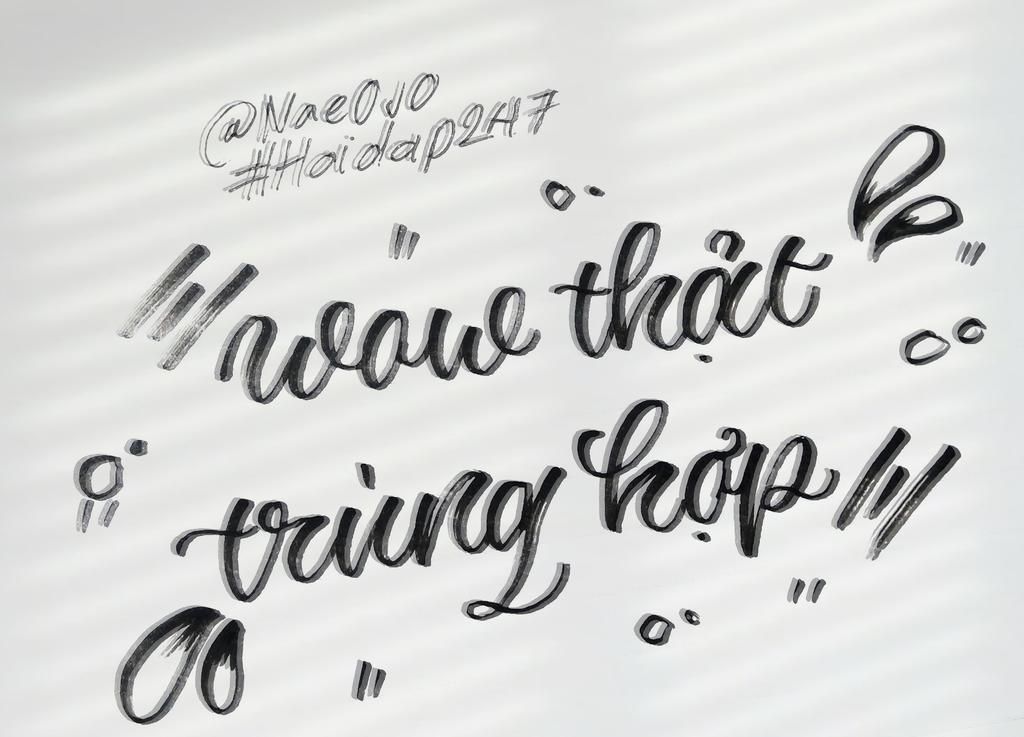 @NaeOJO
#Haidap247
wow thật
trùng hợp